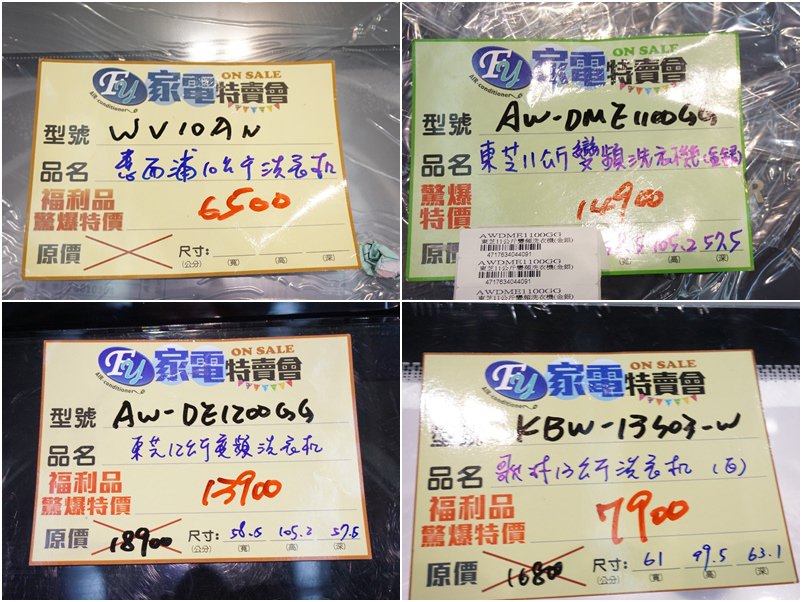 Fy 家電特賣會 ON SALE
AIR conditioner
型號 WV10AN
品名 惠而浦10公斤洗衣机
福利品
驚爆特價 6500
原價 尺寸:
(公分) (寬) (高) (深)
Fy 家電特賣會 ON SALE
AIR conditioner
型號 AW-DME1100GG
品名 東芝11公斤變頻洗衣機(金銀)
福利品
驚爆特價 14900
原價 58.5 105.2 57.5
AWDME1100GG
東芝11公斤變頻洗衣機(金銀)
4717634044091
AWDME1100GG
東芝11公斤變頻洗衣機(金銀)
4717634044091
AWDME1100GG
東芝11公斤變頻洗衣機(金銀)
Fy 家電特賣會 ON SALE
AIR conditioner
型號 AW-DE1200GG
品名 東芝12公斤變頻洗衣机
福利品
驚爆特價 13900
原價 18900 尺寸: 58.5 105.2 57.5
(公分) (寬) (高) (深)
Fy 家電特賣會 ON SALE
AIR conditioner
型號 KBW-13S03-W
品名 歌林13公斤洗衣机(白)
福利品
驚爆特價 7900
原價 10800 尺寸: 61 99.5 63.1
(公分) (寬) (高) (深)